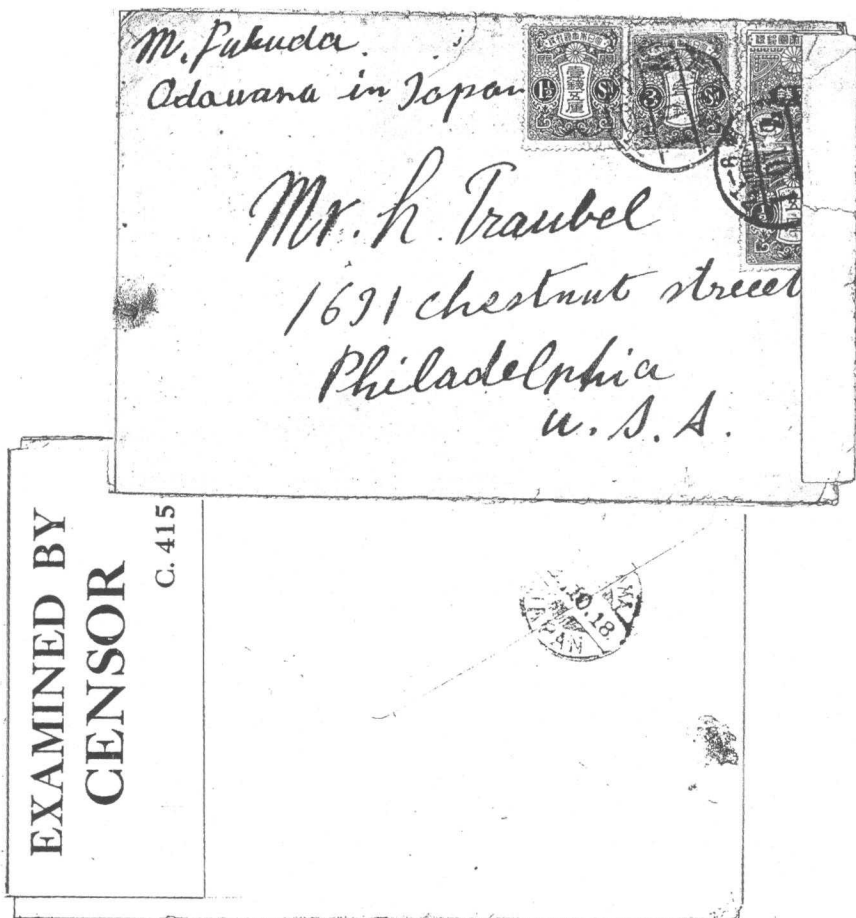 M. Fukuda.
Odawana in Japan
1½ 壹錢五厘 Sn
3 Sn
Mr. h. Traubel
1631 chestnut streeet
Philadelphia
U. S. A.
EXAMINED BY
CENSOR
C. 415
10.18
JAPAN